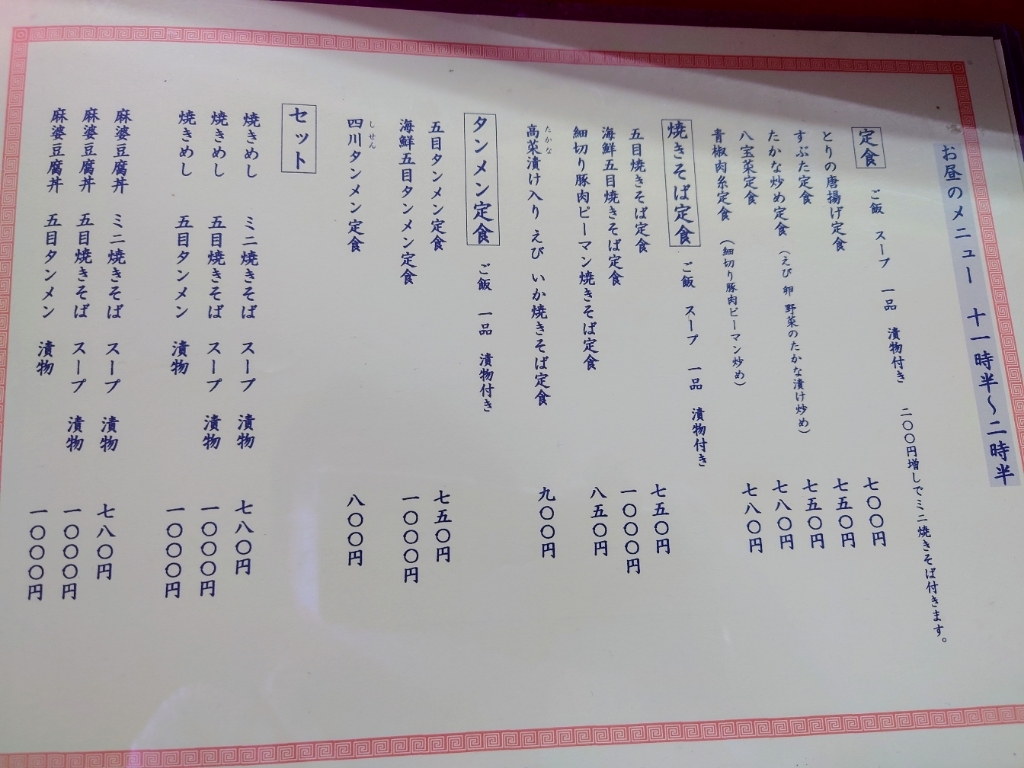 お昼のメニュー 十一時半〜二時半
定食 ご飯 スープ 一品 漬物付き 二〇〇円増しでミニ焼きそば付きます。
とりの唐揚げ定食 七〇〇円
すぶた定食 七五〇円
たかな炒め定食 (えび 卵 野菜のたかな漬け炒め) 七五〇円
八宝菜定食 七八〇円
青椒肉糸定食 (細切り豚肉ピーマン炒め) 七八〇円
焼きそば定食 ご飯 スープ 一品 漬物付き
五目焼きそば定食 七五〇円
海鮮五目焼きそば定食 一〇〇〇円
細切り豚肉ピーマン焼きそば定食 八五〇円
たかな
高菜漬け入り えび いか焼きそば定食 九〇〇円
タンメン定食 ご飯 一品 漬物付き
五目タンメン定食 七五〇円
海鮮五目タンメン定食 一〇〇〇円
しせん
四川タンメン定食 八〇〇円
セット
焼きめし ミニ焼きそば スープ 漬物 七八〇円
焼きめし 五目焼きそば スープ 漬物 一〇〇〇円
焼きめし 五目タンメン 漬物 一〇〇〇円
麻婆豆腐丼 ミニ焼きそば スープ 漬物 七八〇円
麻婆豆腐丼 五目焼きそば スープ 漬物 一〇〇〇円
麻婆豆腐丼 五目タンメン 漬物 一〇〇〇円